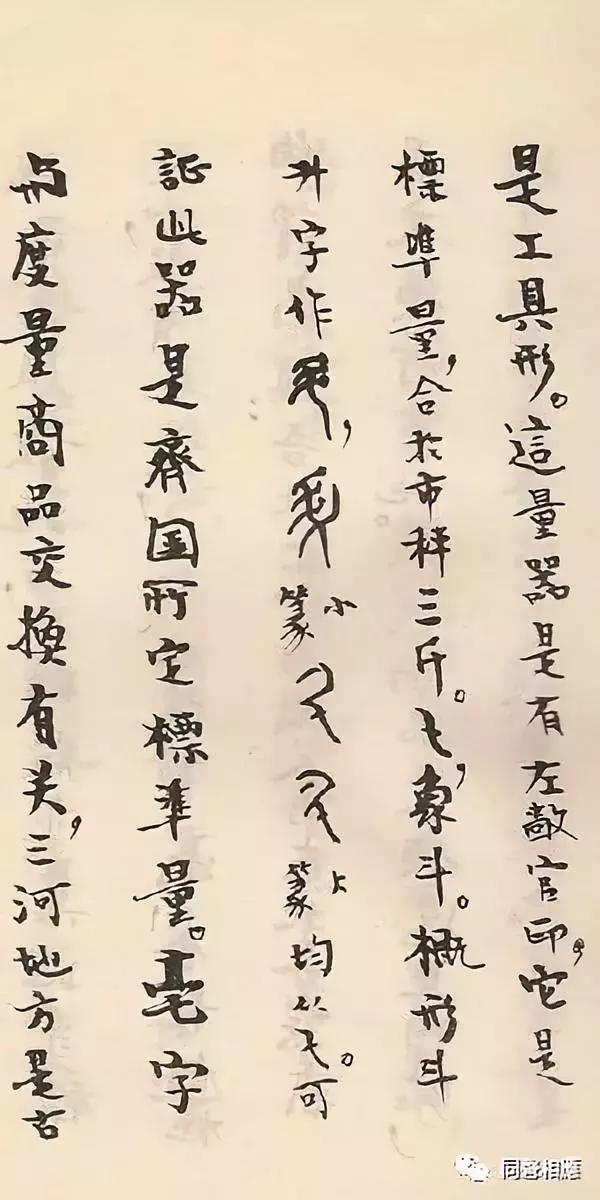 是工具形。這量器是有左敵官印,它是
標準量,合於市秤三斤。乇,象斗。概形斗
升字作,小篆篆均从乇。可
証此器是齊国所定標準量。亳字
与度量商品交換有关,三河地方是古
同聲相應